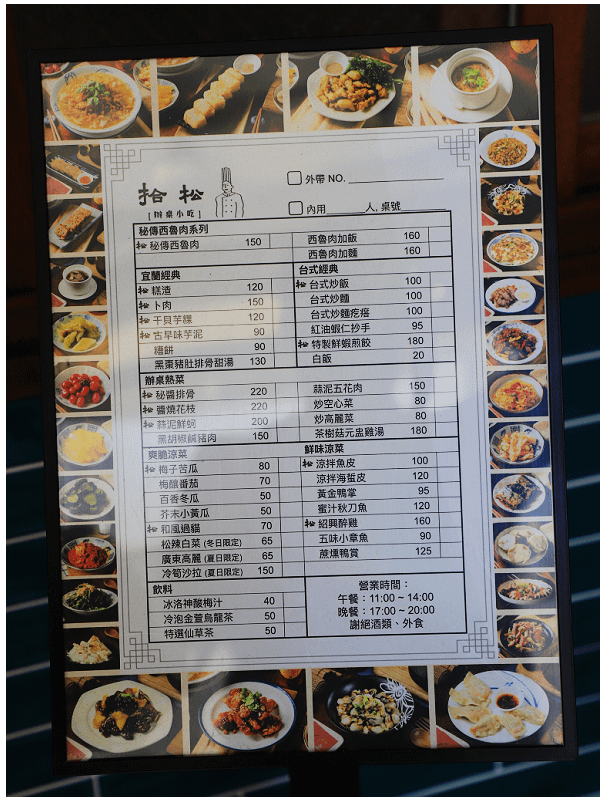 拾松
[辦桌小吃]
外帶 NO.
內用 人, 桌號
秘傳西魯肉系列
拾松 秘傳西魯肉 150
西魯肉加飯 160
西魯肉加麵 160
宜蘭經典
拾松 糕渣 120
拾松 卜肉 150
拾松 干貝芋粿 120
拾松 古早味芋泥 90
糟餅 90
黑棗豬肚排骨甜湯 130
台式經典
拾松 台式炒飯 100
台式炒麵 100
台式炒麵疙瘩 100
紅油蝦仁抄手 95
拾松 特製鮮蝦煎餃 180
白飯 20
辦桌熱菜
拾松 秘醬排骨 220
拾松 醬燒花枝 220
拾松 蒜泥鮮蚵 200
黑胡椒鹹豬肉 150
蒜泥五花肉 150
炒空心菜 80
炒高麗菜 80
茶樹菇元盅雞湯 180
爽脆涼菜
拾松 梅子苦瓜 80
梅釀番茄 70
百香冬瓜 50
芥末小黃瓜 50
拾松 和風過貓 70
松辣白菜 (冬日限定) 65
廣東高麗 (夏日限定) 65
冷筍沙拉 (夏日限定) 150
鮮味涼菜
拾松 涼拌魚皮 100
涼拌海蜇皮 120
黃金鴨掌 95
蜜汁秋刀魚 120
拾松 紹興醉雞 160
五味小章魚 90
蔗燻鴨賞 125
飲料
冰洛神酸梅汁 40
冷泡金萱烏龍茶 50
特選仙草茶 50
營業時間：
午餐：11:00 ~ 14:00
晚餐：17:00 ~ 20:00
謝絕酒類、外食